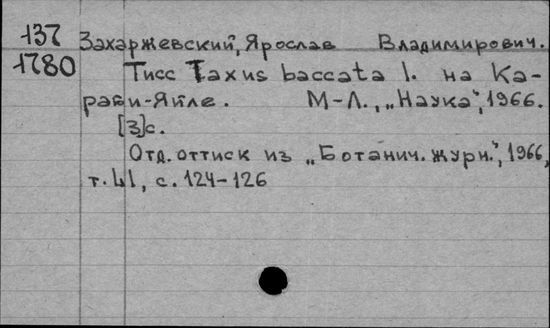 137 Захаржевский, Ярослав Владимирович.
1780 Тисс Taxus baccata l. на Ка-
раби-Яйле. М-Л., „Наука", 1966.
[3]с.
Отд. оттиск из „Ботанич. журн.", 1966,
т. 41, с. 124-126